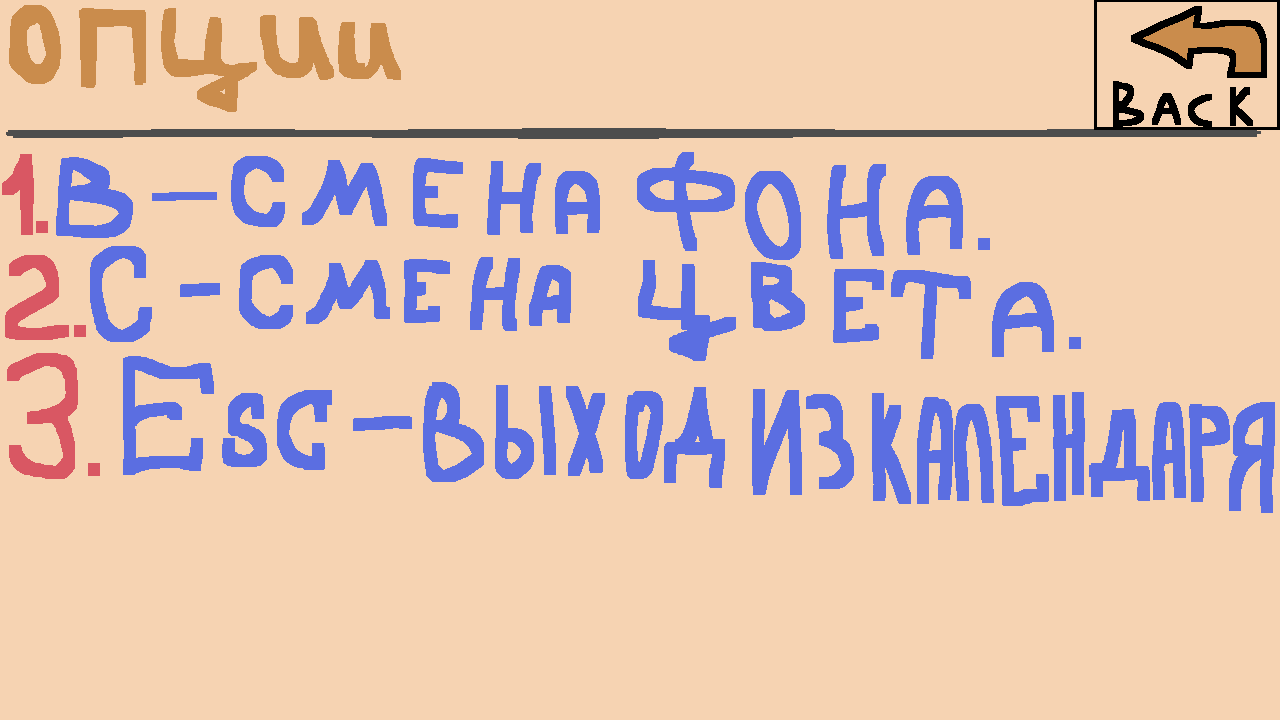 опции
BACK
1. B – СМЕНА ФОНА.
2. C – СМЕНА ЦВЕТА.
3. Esc – ВЫХОД ИЗ КАЛЕНДАРЯ